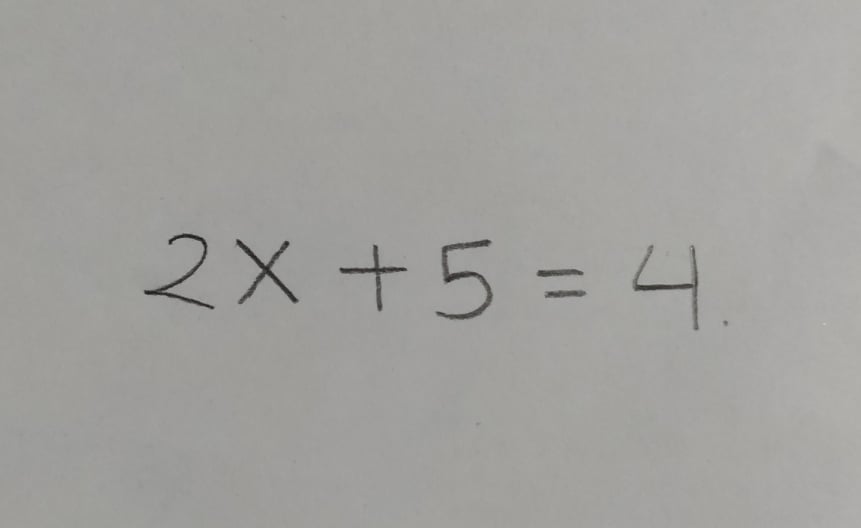 2x + 5 = 4.